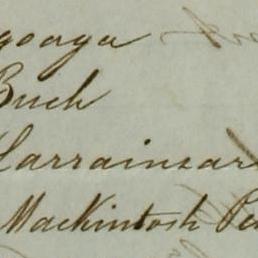 goaga
Buch
Larrainzar
Mackintosh Pe